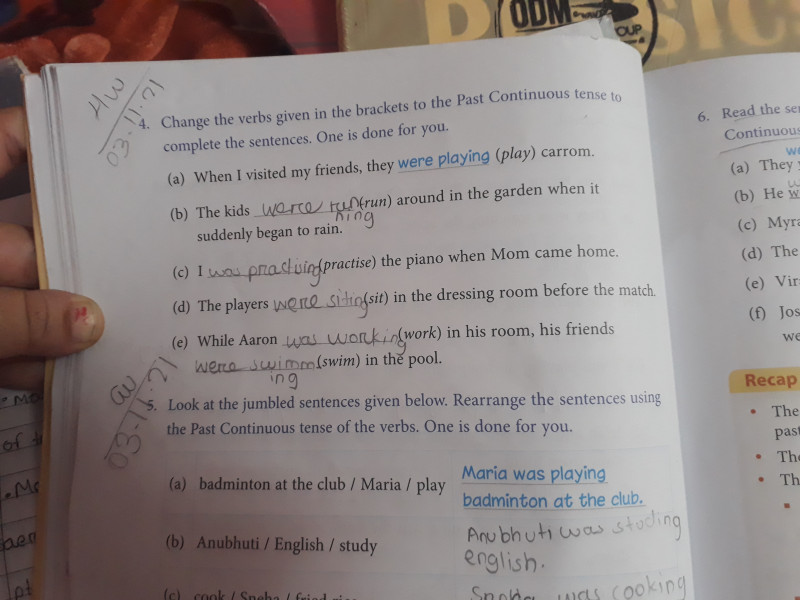 ODM
OUP
BASICS
HW
03.11.21
4. Change the verbs given in the brackets to the Past Continuous tense to
complete the sentences. One is done for you.
(a) When I visited my friends, they were playing (play) carrom.
(b) The kids were run (run) around in the garden when it
ning
suddenly began to rain.
(c) I was practicing (practise) the piano when Mom came home.
(d) The players were siting (sit) in the dressing room before the match.
(e) While Aaron was working (work) in his room, his friends
were swimm (swim) in the pool.
ing
03.11.21
5. Look at the jumbled sentences given below. Rearrange the sentences using
the Past Continuous tense of the verbs. One is done for you.
(a) badminton at the club / Maria / play Maria was playing
badminton at the club.
(b) Anubhuti / English / study Anubhuti was studing
english.
(c) cook / Sneha / fried rice Sneha was cooking
6. Read the se
Continuous
we
(a) They
(b) He w
(c) Myra
(d) The
(e) Vir
(f) Jos
we
Recap
• The
past
• The
• Th